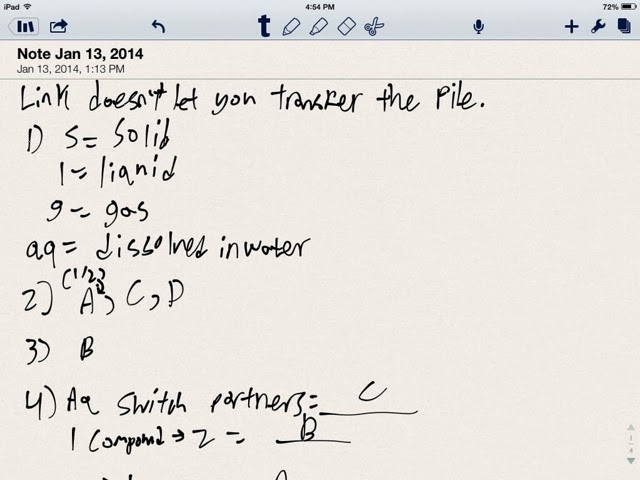 iPad 4:54 PM 72%
Note Jan 13, 2014
Jan 13, 2014, 1:13 PM
Link doesn't let you transfer the file.
1) S= Solid
l= liquid
g= gas
aq= dissolved in water
(1/2)
2) A, C, D
3) B
4) Aq switch partners= C
1 compound → 2 = B